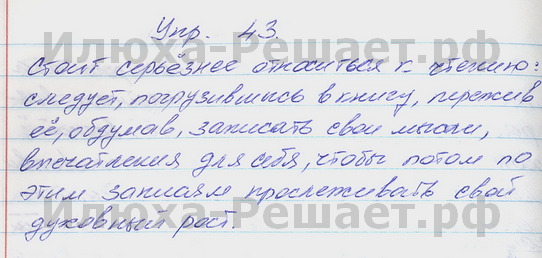 Упр. 43.
Илюха-Решает.рф
Стоит серьёзнее относиться к чтению:
следует, погрузившись в книгу, пережив
её, обдумав, записать свои мысли,
впечатления для себя, чтобы потом по
этим записям прослеживать свой
Илюха-Решает.рф
духовный рост.